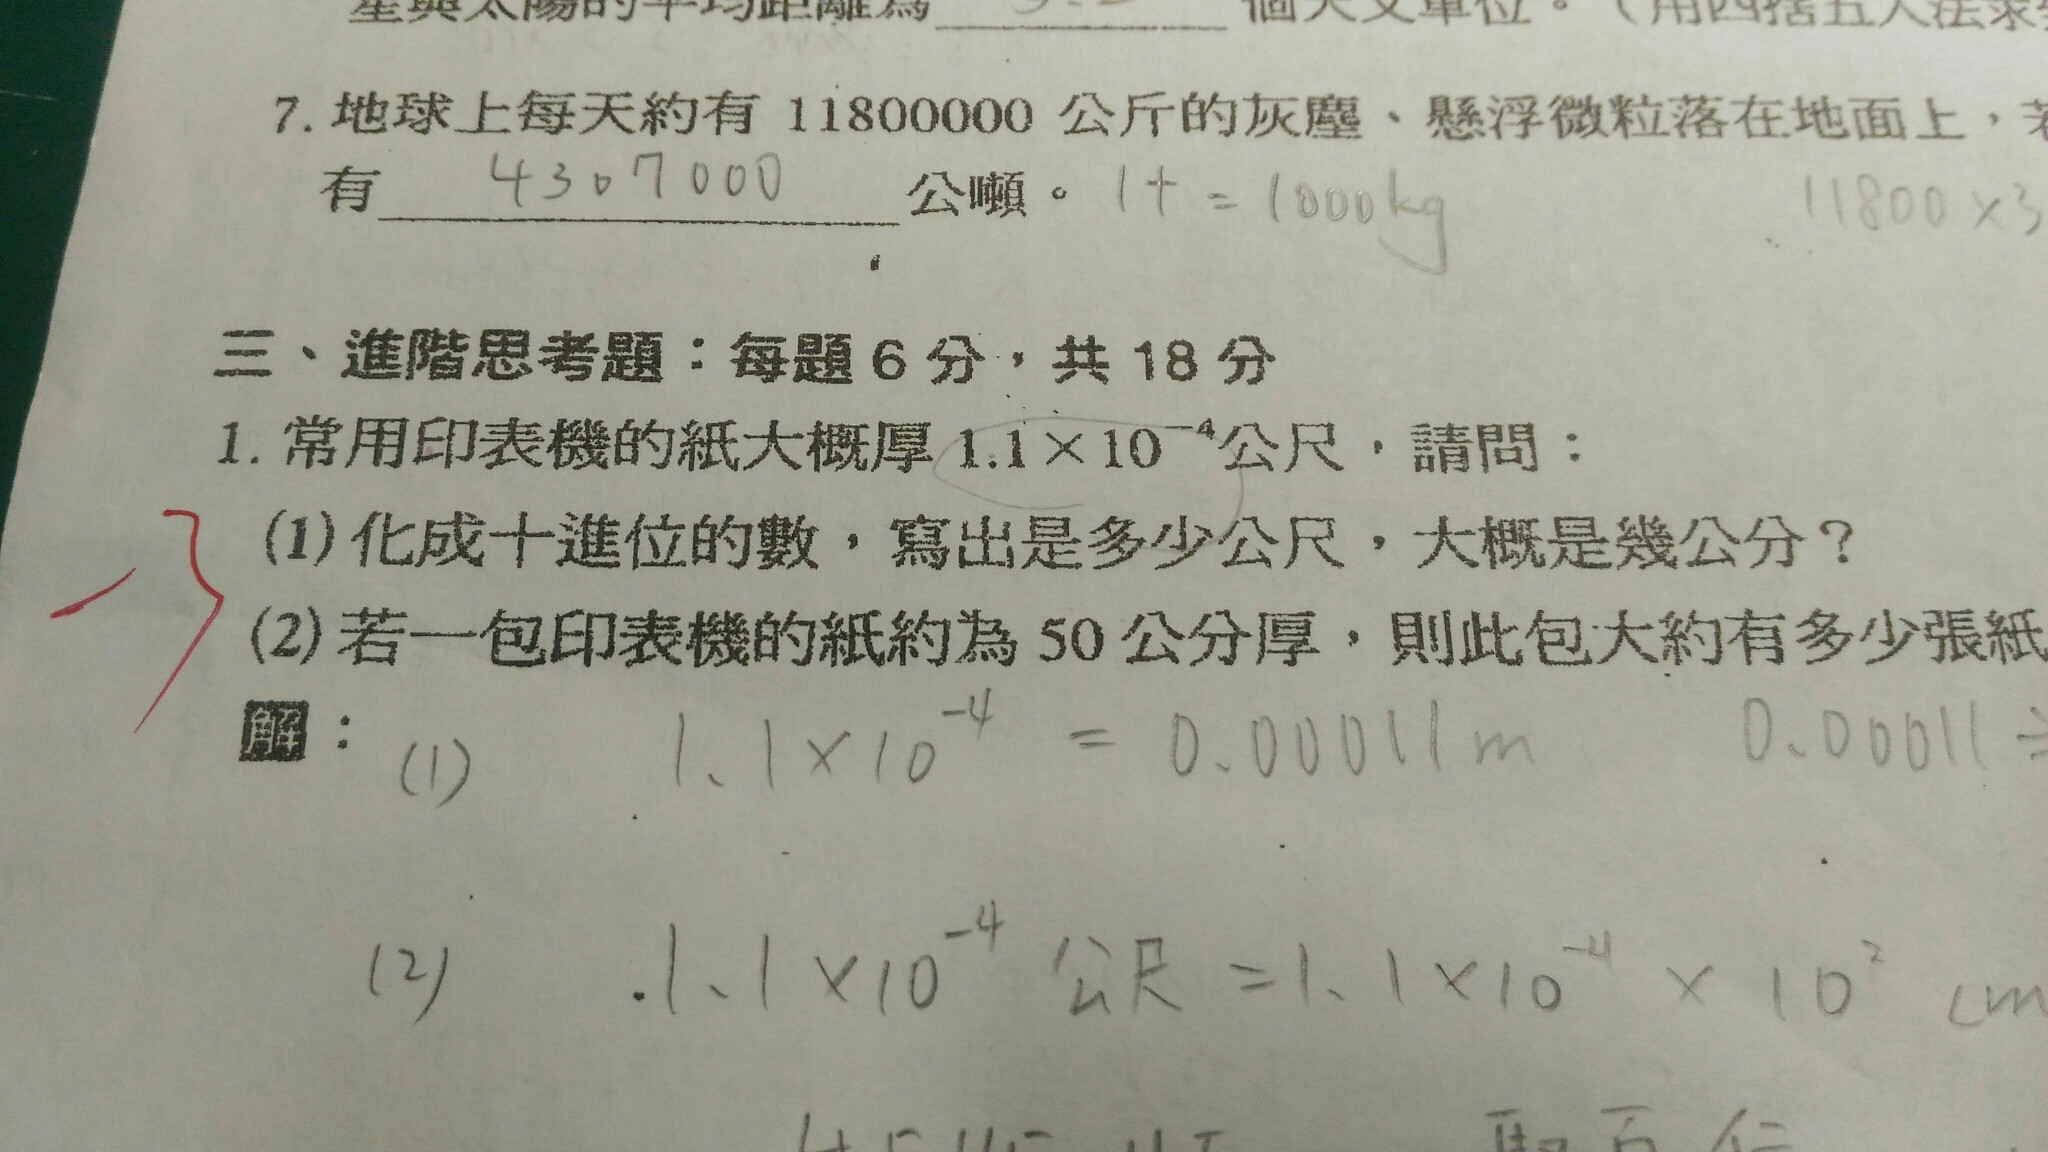 星與太陽的平均距離為 個天文單位。(用四捨五入法求
7. 地球上每天約有 11800000 公斤的灰塵、懸浮微粒落在地面上,若
有 4307000 公噸。 1t = 1000kg 11800×3
三、進階思考題:每題 6 分,共 18 分
1. 常用印表機的紙大概厚 1.1×10⁻⁴公尺,請問:
(1) 化成十進位的數,寫出是多少公尺,大概是幾公分?
(2) 若一包印表機的紙約為 50 公分厚,則此包大約有多少張紙
解: (1) 1.1×10⁻⁴ = 0.00011m 0.00011
(2) 1.1×10⁻⁴ 公尺 = 1.1×10⁻⁴ × 10² cm